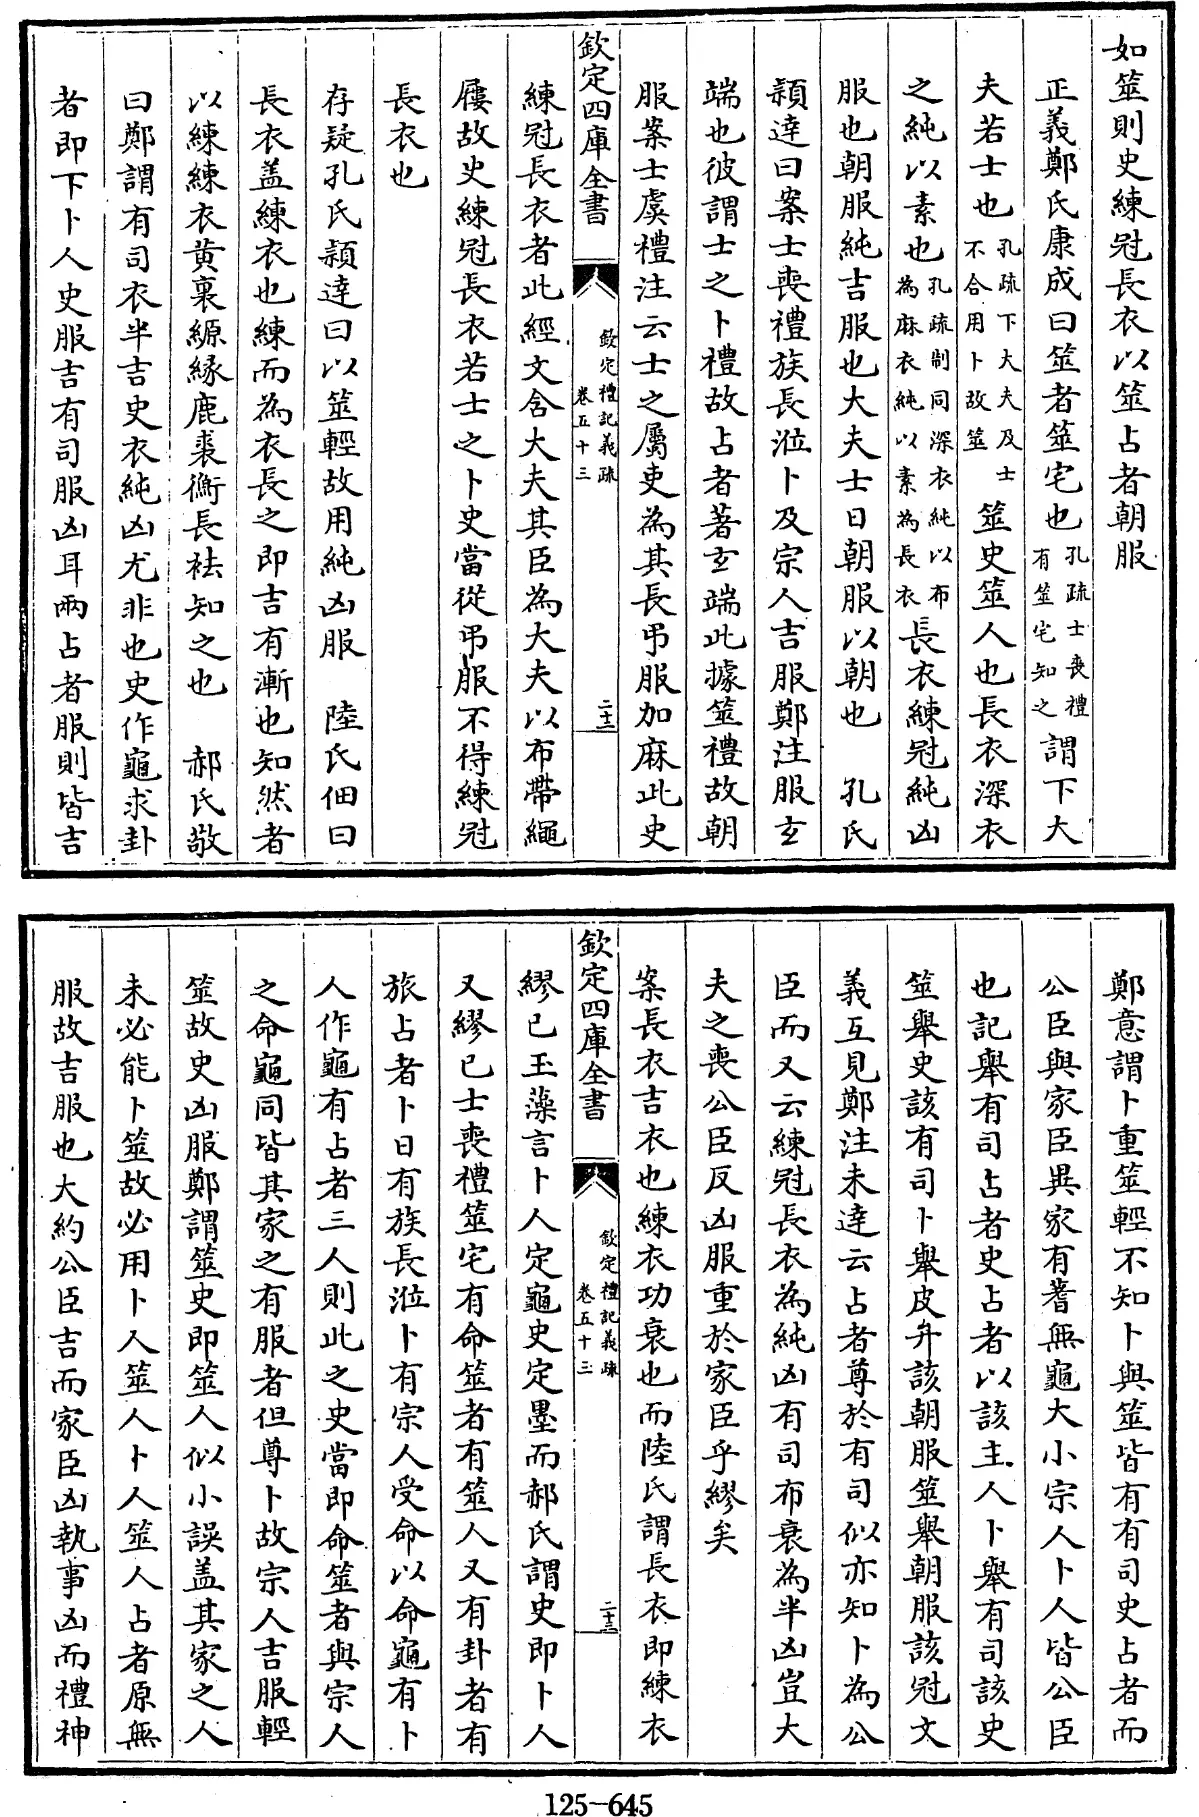 如筮則史練冠長衣以筮占者朝服
正義鄭氏康成曰筮者筮宅也孔疏士喪禮有筮宅知之謂下大
夫若士也孔疏下大夫及士不合用卜故筮筮史筮人也長衣深衣
之純以素也孔疏制同深衣純以布為麻衣純以素為長衣長衣練冠純凶
服也朝服純吉服也大夫士日朝服以朝也　孔氏
穎達曰案士喪禮族長涖卜及宗人吉服鄭注服玄
端也彼謂士之卜禮故占者著玄端此據筮禮故朝
服案士虞禮注云士之屬吏為其長弔服加麻此史
欽定四庫全書　欽定禮記義疏卷五十三　二十二
練冠長衣者此經文含大夫其臣為大夫以布帶繩
屨故史練冠長衣若士之卜史當從弔服不得練冠
長衣也
存疑孔氏穎達曰以筮輕故用純凶服　陸氏佃曰
長衣盖練衣也練而為衣長之即吉有漸也知然者
以練練衣黃裏縓緣鹿裘衡長袪知之也　郝氏敬
曰鄭謂有司衣半吉史衣純凶尤非也史作龜求卦
者即下卜人史服吉有司服凶耳兩占者服則皆吉
鄭意謂卜重筮輕不知卜與筮皆有有司史占者而
公臣與家臣異家有蓍無龜大小宗人卜人皆公臣
也記舉有司占者史占者以該主人卜舉有司該史
筮舉史該有司卜舉皮弁該朝服筮舉朝服該冠文
義互見鄭注未達云占者尊於有司似亦知卜為公
臣而又云練冠長衣為純凶有司布衰為半凶豈大
夫之喪公臣反凶服重於家臣乎繆矣
案長衣吉衣也練衣功衰也而陸氏謂長衣即練衣
欽定四庫全書　欽定禮記義疏卷五十三　二十三
繆已玉藻言卜人定龜史定墨而郝氏謂史即卜人
又繆已士喪禮筮宅有命筮者有筮人又有卦者有
旅占者卜日有族長涖卜有宗人受命以命龜有卜
人作龜有占者三人則此之史當即命筮者與宗人
之命龜同皆其家之有服者但尊卜故宗人吉服輕
筮故史凶服鄭謂筮史即筮人似小誤盖其家之人
未必能卜筮故必用卜人筮人卜人筮人占者原無
服故吉服也大約公臣吉而家臣凶執事凶而禮神
125-645